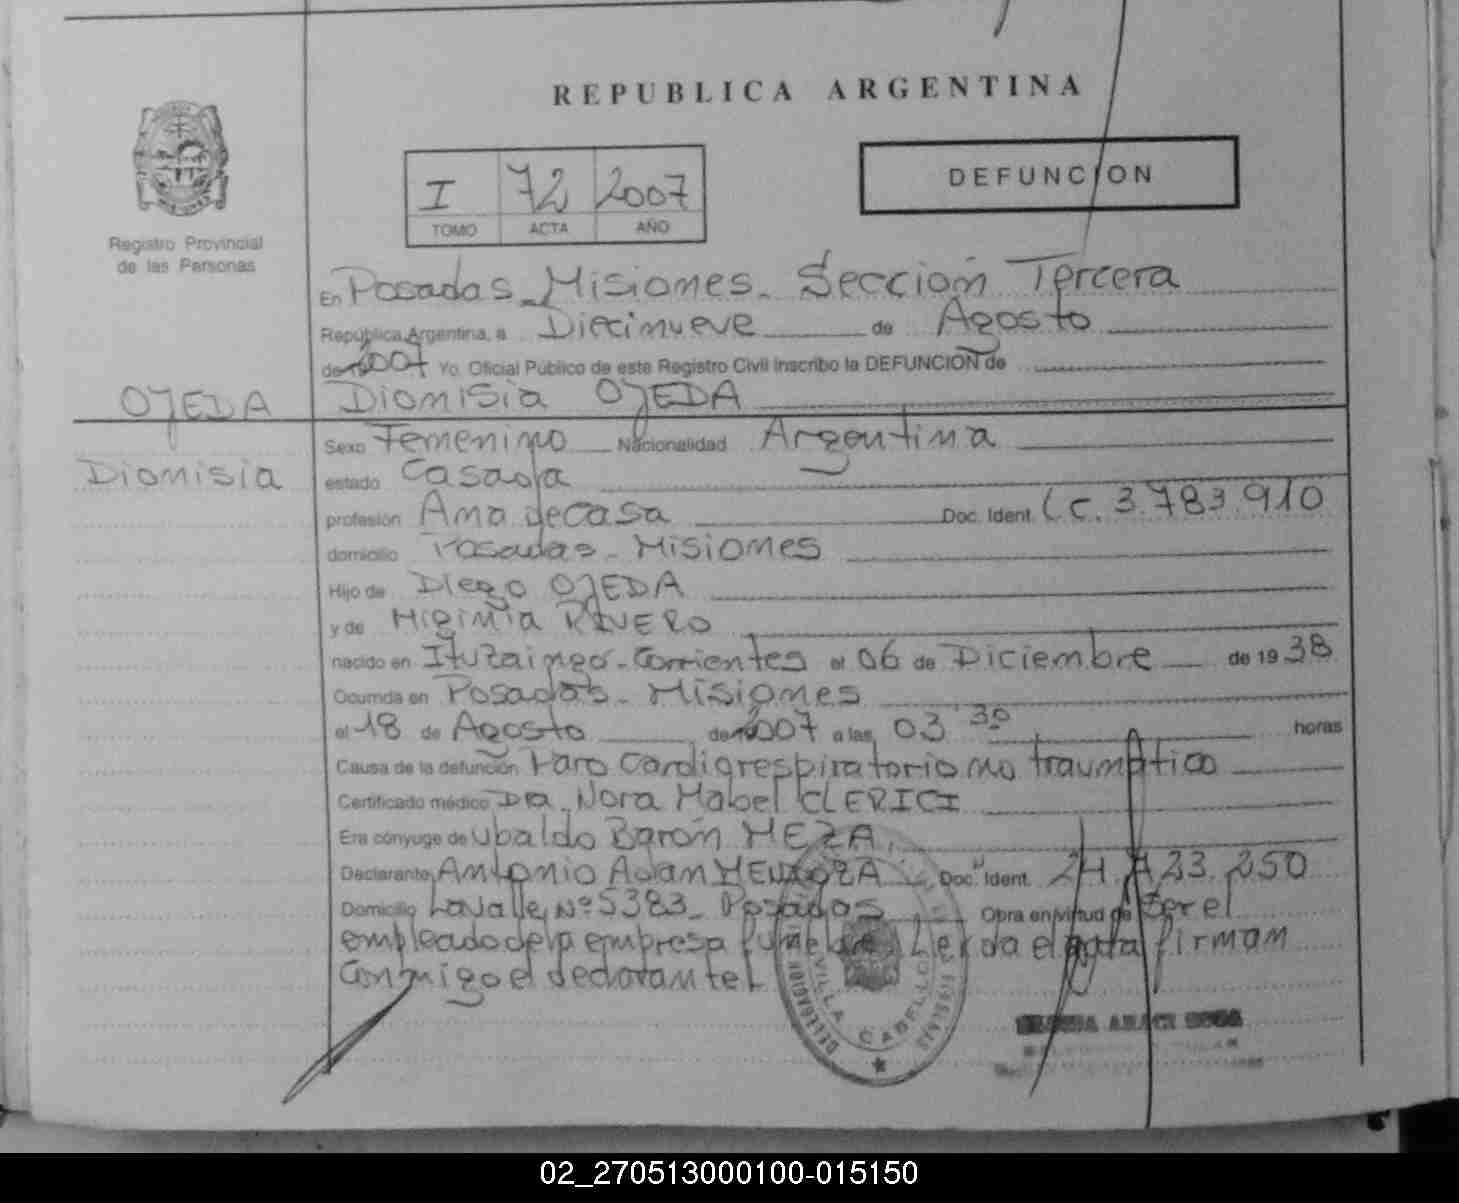 REPUBLICA ARGENTINA
I 72 2007
TOMO ACTA AÑO
DEFUNCION
Registro Provincial
de las Personas
En Posadas - Misiones - Sección Tercera
República Argentina, a Diecinueve de Agosto
de 2007 Yo, Oficial Público de este Registro Civil inscribo la DEFUNCION de
OJEDA Dionisia OJEDA
Sexo Femenino Nacionalidad Argentina
Dionisia estado Casada
profesión Ama de casa Doc. Ident. L.C. 3.783.910
domicilio Posadas - Misiones
Hijo de Diego OJEDA
y de Higinia RIVERO
nacido en Ituzaingó - Corrientes el 06 de Diciembre de 1938
Ocurrida en Posadas - Misiones
el 18 de Agosto de 2007 a las 03 30 horas
Causa de la defunción Paro Cardiorespiratorio no traumático
Certificado médico Dra. Nora Mabel CLERICI
Era cónyuge de Ubaldo Barón MEZA
Declarante Antonio Adan MENDOZA Doc. Ident. 250
Domicilio Lavalle Nº 5383 - Posadas Obra en virtud de Ser el
empleado de la empresa Leida el acta firman
conmigo el declarante
DELEGACION VILLA CABELLO MISIONES
02_270513000100-015150